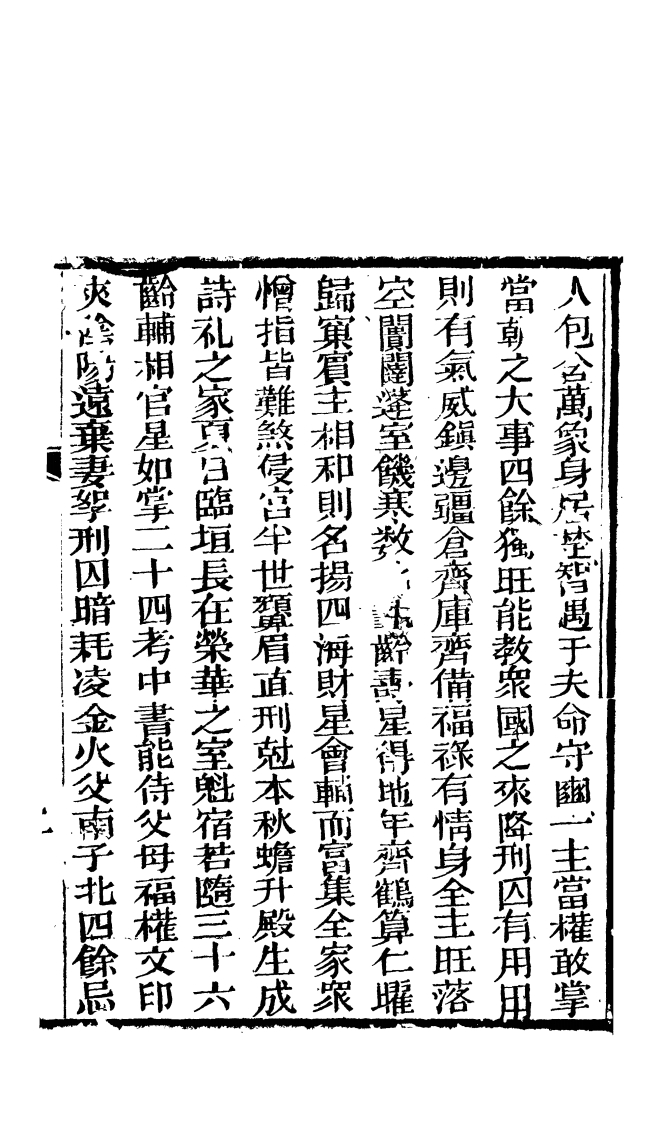 人包含萬象身居壁智過于夫命守豳一主當權敢掌
當朝之大事四餘獨旺能教衆國之來降刑囚有用用
則有氣威鎮邊疆倉齊庫齊備福祿有情身全主旺落
空闇闥蓬室饑寒数齡壽星得地年齊鶴算仁曜
歸窠賓主相和則名揚四海財星會輔而富集全家衆
憎指皆難煞侵宮半世顰眉直刑尅本秋蟾升殿生成
詩礼之家夏日臨垣長在榮華之室魁宿若隨三十六
齡輔相官星如掌二十四考中書能侍父母福權文印
夾陰陽遠棄妻孥刑囚暗耗凌金火父南子北四餘忌